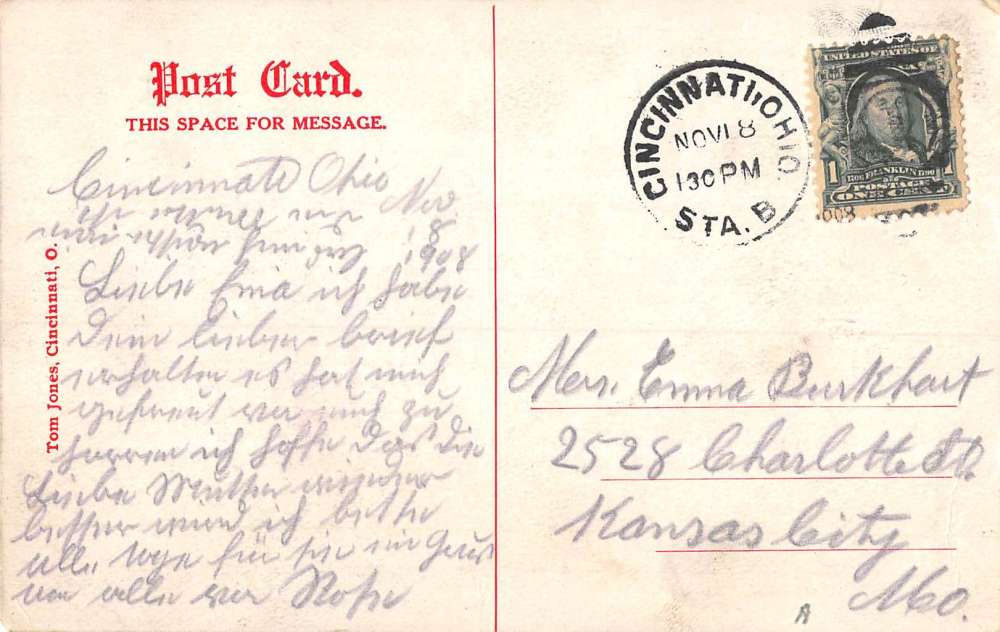 Post Card.
THIS SPACE FOR MESSAGE.
Tom Jones, Cincinnati, O.
Cincinnati Ohio
Nov
8
1908
Liebe Ema ich habe
Dein lieben brief
erhalten es hat mich
gefreut von euch zu
horren ich hoffe das die
Liebe Mutter wieder
besser wird ich bette
alle tage für sie ein Gruss
von alle von Rosa
CINCINNATI, OHIO.
NOV 8
130 PM
STA. B
UNITED STATES OF
1 FRANKLIN 1
POSTAGE
ONE CENT
Mrs. Emma Burkhart
2528 Charlotte St.
Kansas City
Mo.
A